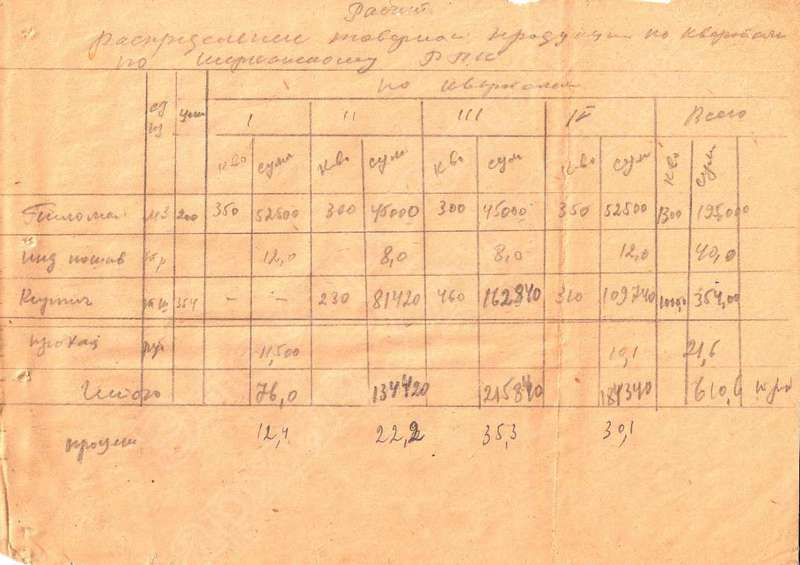 Расчет
распределении товарной продукции по кварталам
по РПК
ед из цена по кварталам
I II III IV Всего
к-во сума к-во сум к-во сум к-во сум к-во сум
Пилома м3 200 350 52500 300 45000 300 45000 350 52500 1300 195,000
инд пошив 12,0 8,0 8,0 12,0 40,0
Кирпич 354 - - 230 81420 460 162840 310 109740 1000,0 354,00
прокат 11,500 10,1 21,6
Итого 76,0 134420 215840 184340 610,6
12,4 22,2 35,3 30,1